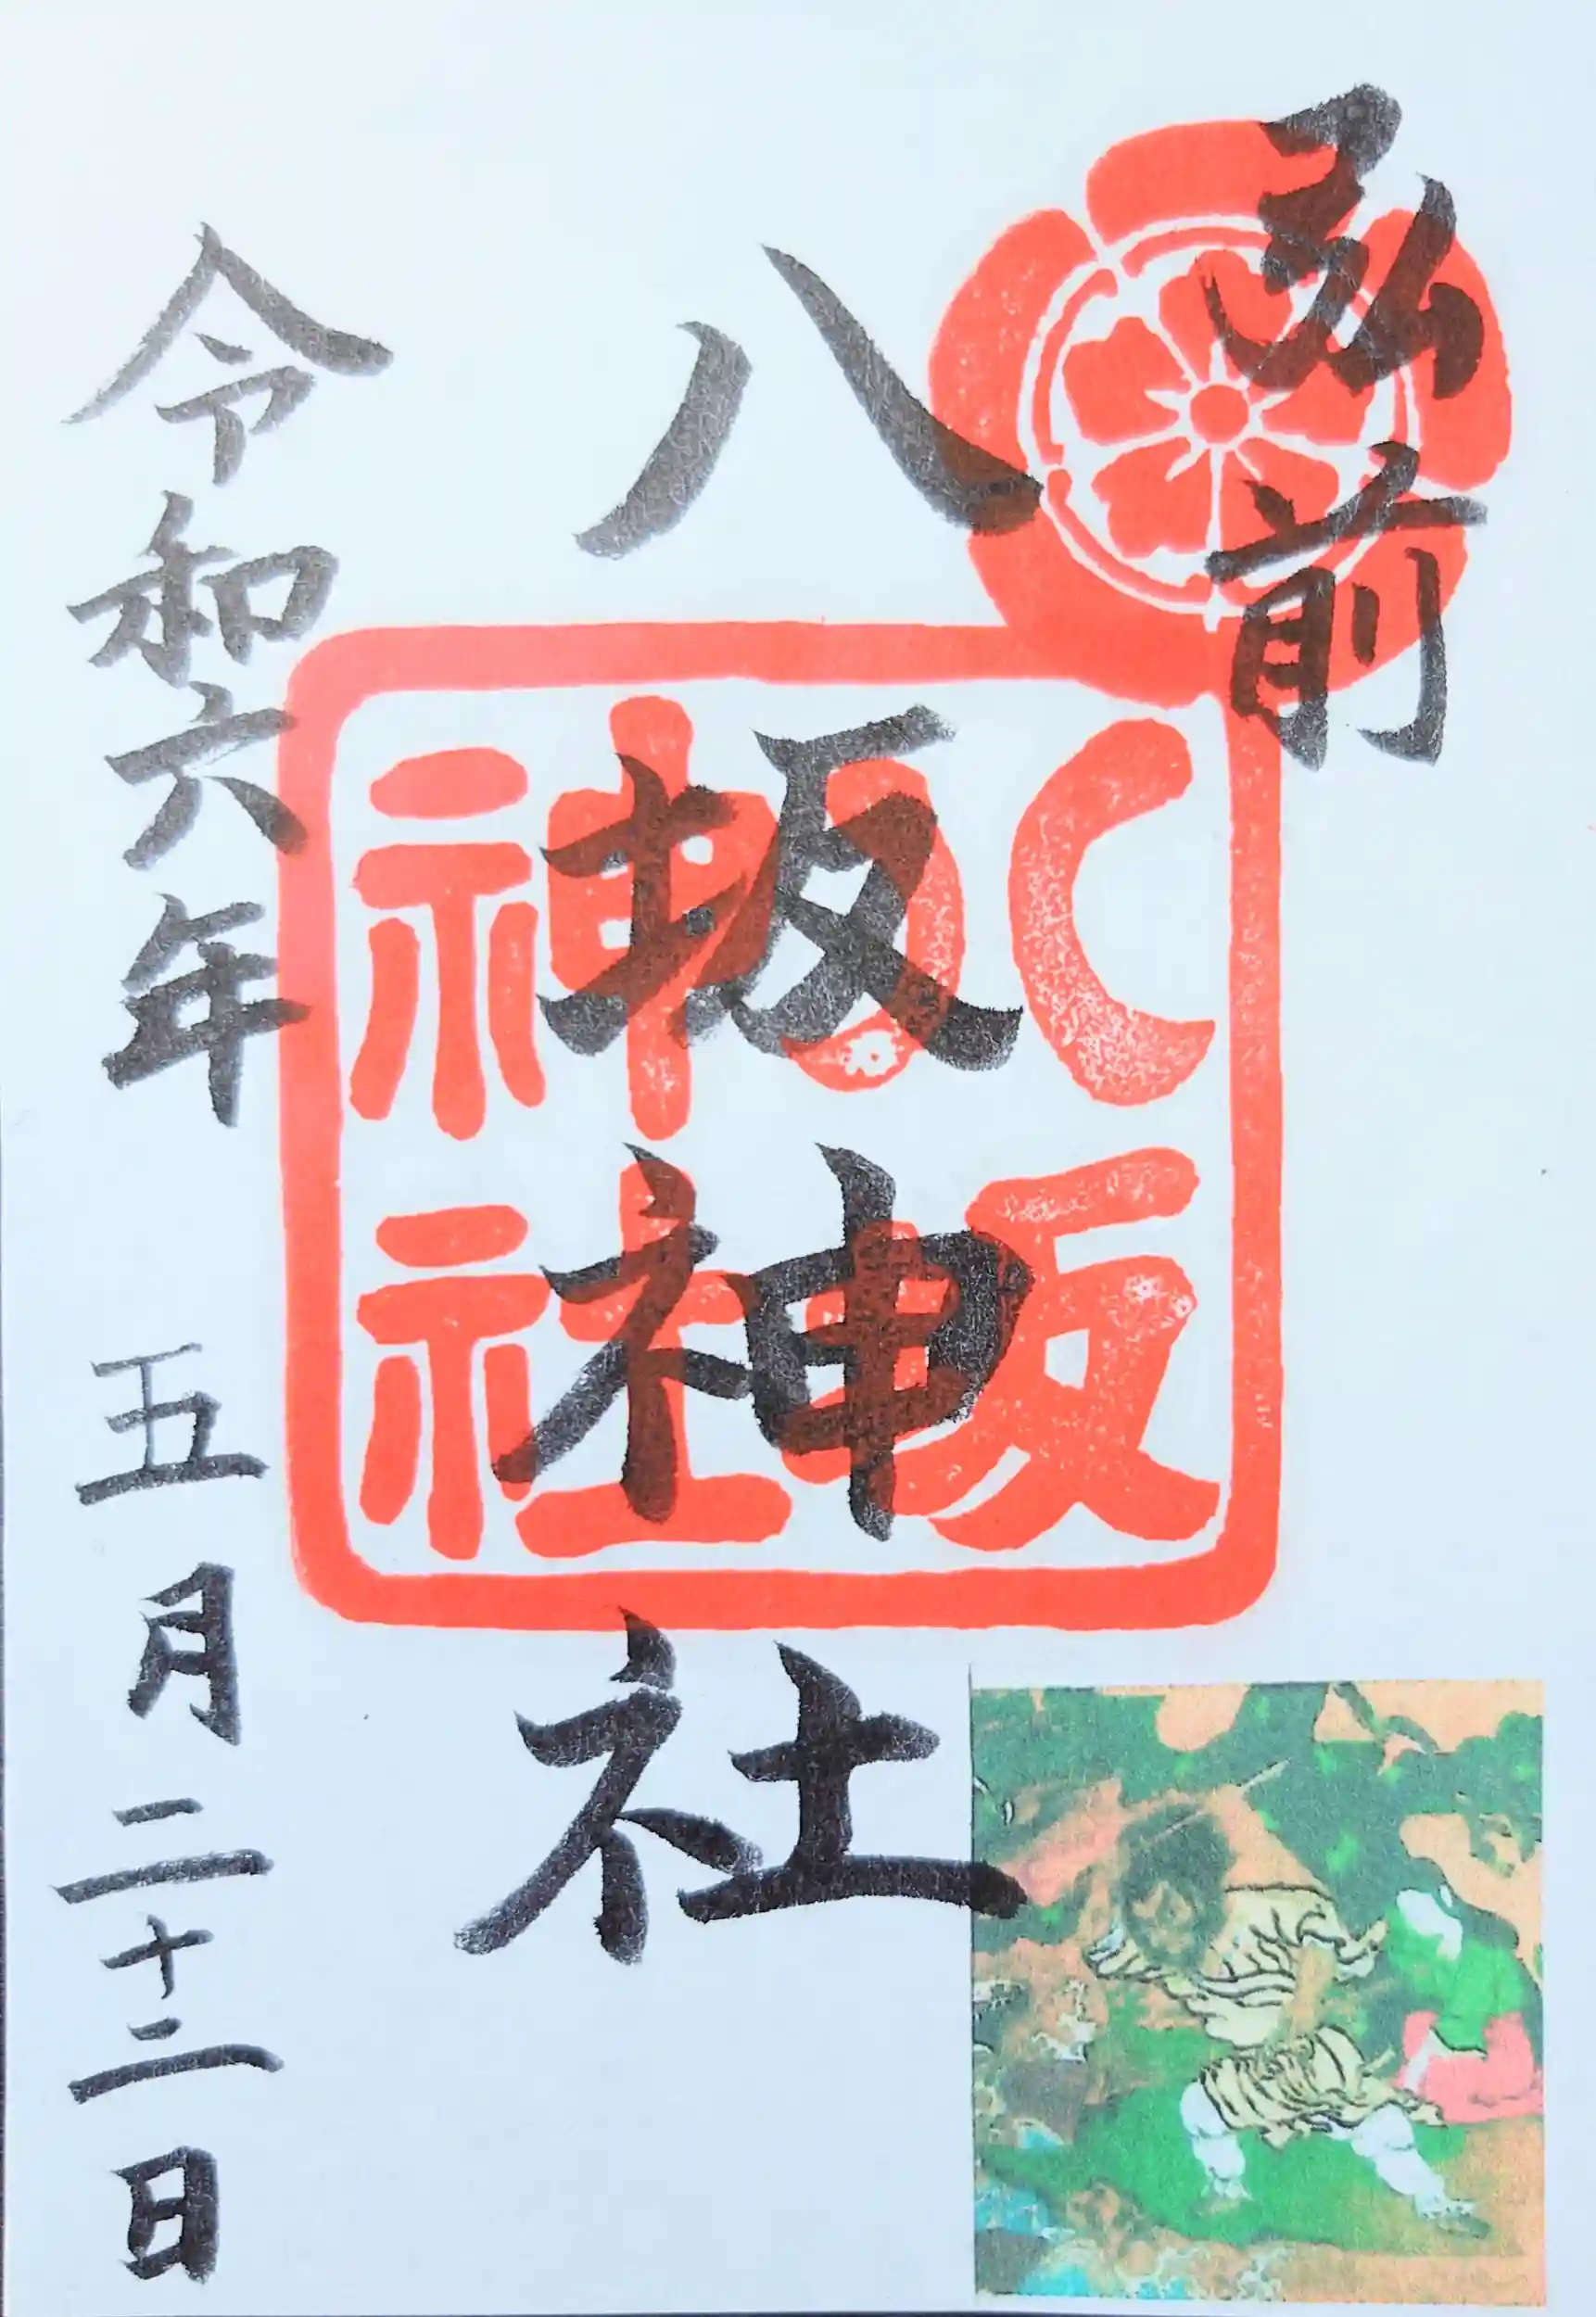 弘前
八坂神社
八坂
神社
令和六年 五月二十二日